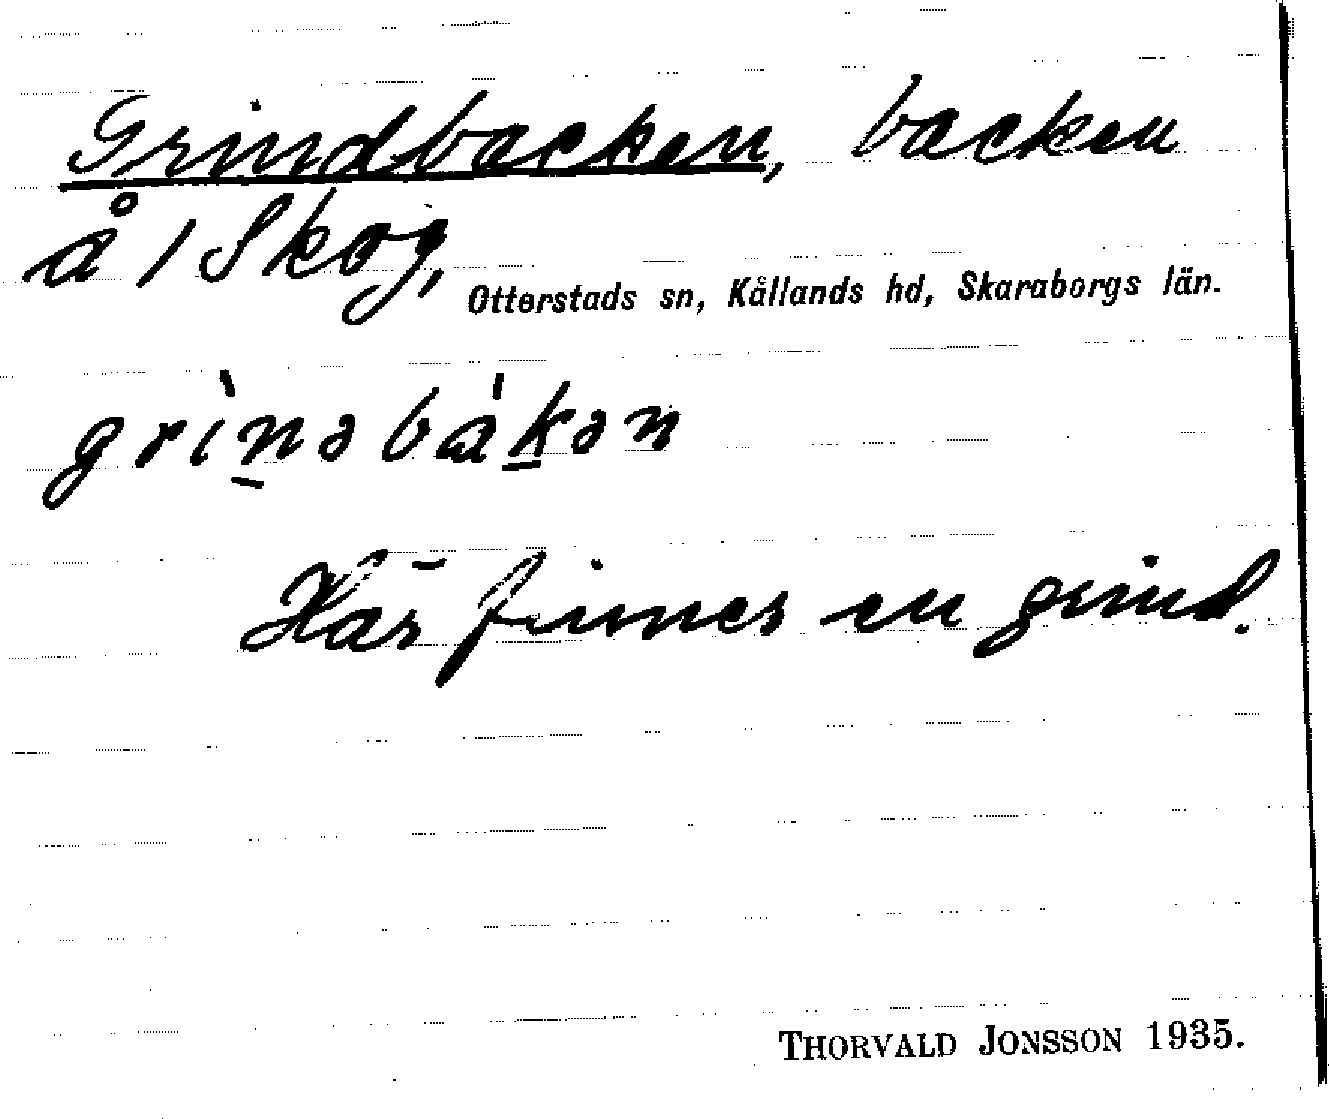 Grindbacken, backen
å 1 Skog,
Otterstads sn, Kållands hd, Skaraborgs län.
grìn̲əbàk̲ən
Här finnes en grind.
THORVALD JONSSON 1935.